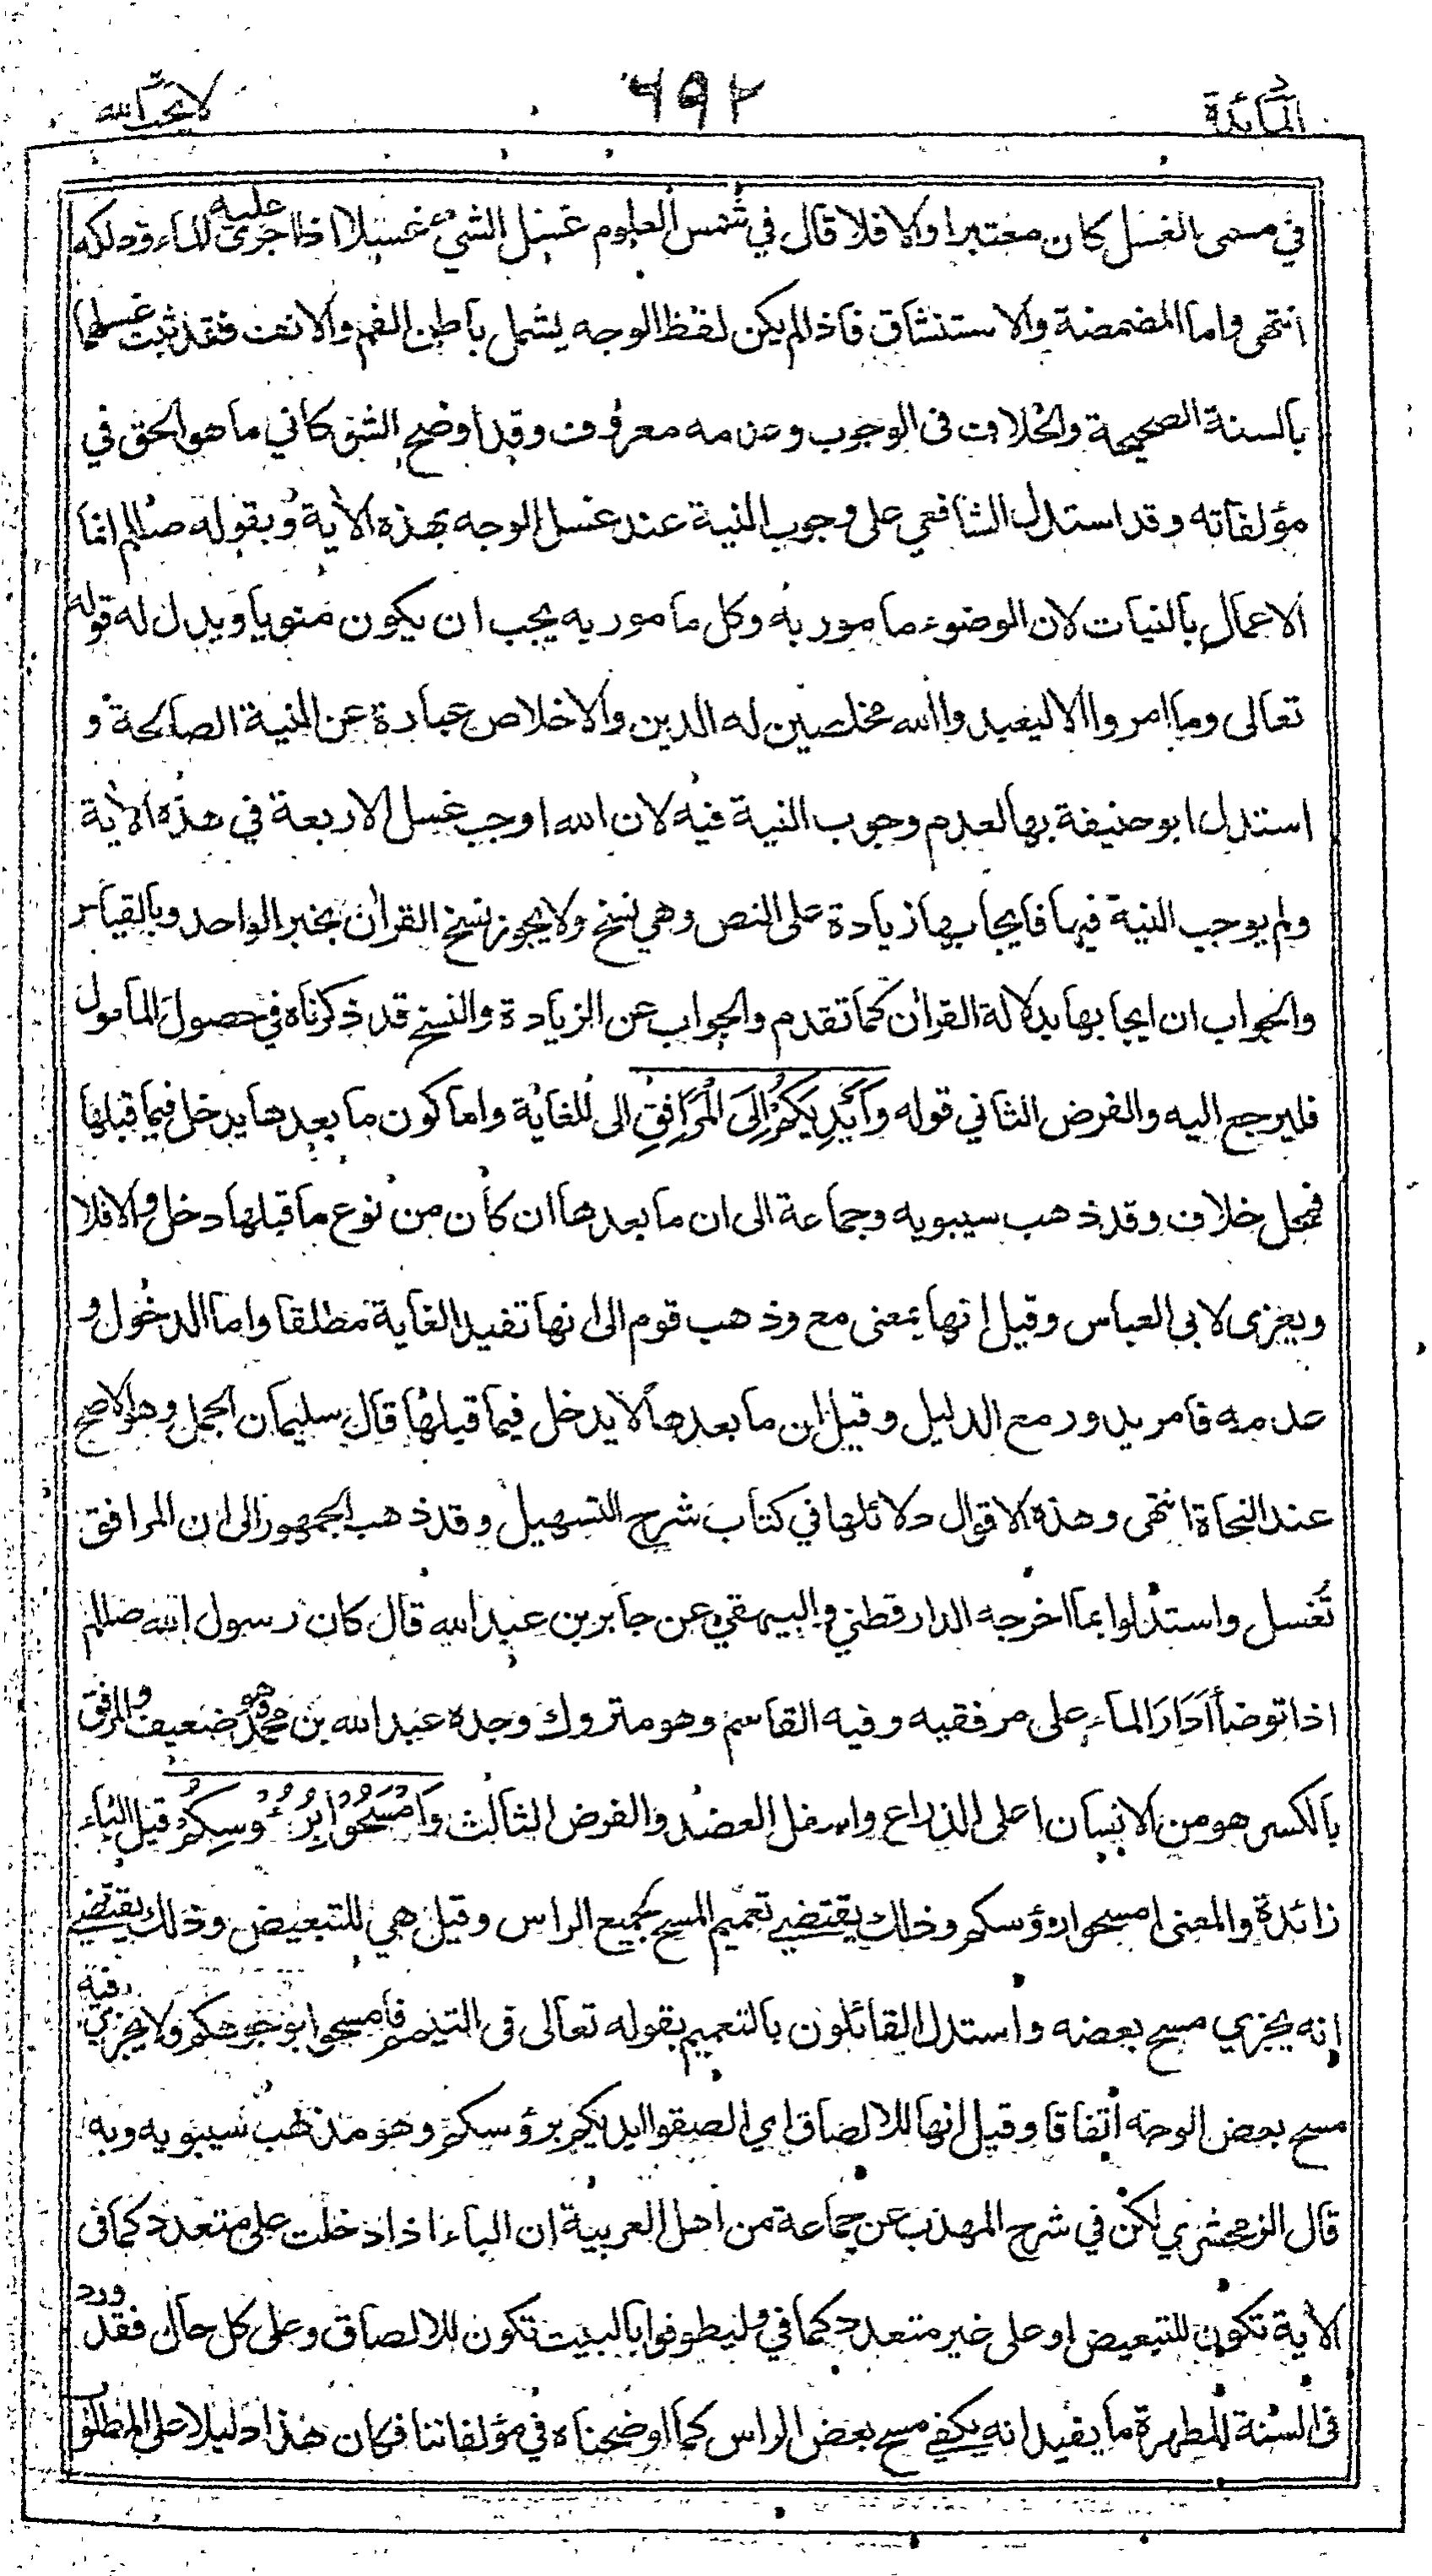 المائدة
٦٩٢
لا يحب الله
في مسمى الغسل كان معتبرا والا فلا قال في شمس العلوم غسل الشيء غسلا اذا اجرى عليه الماء ودلكه
انتهى واما المضمضة والاستنشاق فاذا لم يكن لفظ الوجه يشمل باطن الفم والانف فقد ثبت غسلهما
بالسنة الصحيحة والخلاف فى الوجوب وعدمه معروف وقد اوضح الشوكاني ما هو الحق في
مؤلفاته وقد استدل الشافعي على وجوب النية عند غسل الوجه بهذه الآية وبقوله صللم انما
الاعمال بالنيات لان الوضوء مامور به وكل مامور به يجب ان يكون منويا ويدل له قوله
تعالى وما امروا الا ليعبدوا الله مخلصين له الدين والاخلاص عبادة عن النية الصالحة و
استدل ابو حنيفة بها لعدم وجوب النية فيه لان الله اوجب غسل الاربعة في هذه الآية
ولم يوجب النية فيها فايجابها زيادة على النص وهي نسخ ولا يجوز نسخ القران بخبر الواحد وبالقياس
والجواب ان ايجابها بدلالة القران كما تقدم والجواب عن الزيادة والنسخ قد ذكرناه في حصول المامول
فليرجع اليه والفرض الثاني قوله وَاَيْدِيَكُمْ اِلَى الْمَرَافِقِ الى للغاية واما كون ما بعدها يدخل فيما قبلها
فمحل خلاف وقد ذهب سيبويه وجماعة الى ان ما بعدها ان كان من نوع ما قبلها دخل والا فلا
ويعزى لابي العباس وقيل انها بمعنى مع وذهب قوم الى انها تفيد الغاية مطلقا واما الدخول و
عدمه فامر يدور مع الدليل وقيل ان ما بعدها لا يدخل فيما قبلها قال سليمان الجمل وهو الاصح
عند النحاة انتهى وهذه الاقوال دلائلها في كتاب شرح التسهيل وقد ذهب الجمهور الى ان المرافق
تُغسل واستدلوا بما اخرجه الدارقطني والبيهقي عن جابر بن عبد الله قال كان رسول الله صللم
اذا توضأ اَدَارَ الماء على مرفقيه وفيه القاسم وهو متروك وجده عبد الله بن محمد وهو ضعيف والمرفق
بالكسر هو من الانسان اعلى الذراع واسفل العضد والفرض الثالث وَامْسَحُوْا بِرُءُوسِكُمْ قيل الباء
زائدة والمعنى امسحوا رؤسكم وذلك يقتضي تعميم المسح لجميع الراس وقيل هي للتبعيض وذلك يقتضي
انه يجزي مسح بعضه واستدل القائلون بالتعميم بقوله تعالى فى التيمم فامسحوا بوجوهكم ولا يجزي فيه
مسح بعض الوجه اتفاقا وقيل انها للالصاق اي الصقوا ايديكم برؤسكم وهو مذهب سيبويه وبه
قال الزمخشري لكن في شرح المهذب عن جماعة من اهل العربية ان الباء اذا دخلت على متعدد كما فى
الآية تكون للتبعيض او على غير متعدد كما في وليطوفوا بالبيت تكون للالصاق وعلى كل حال فقد ورد
فى السنة المطهرة ما يفيد انه يكفي مسح بعض الراس كما اوضحناه في مؤلفاتنا فكان هذا دليلا على المطلوب